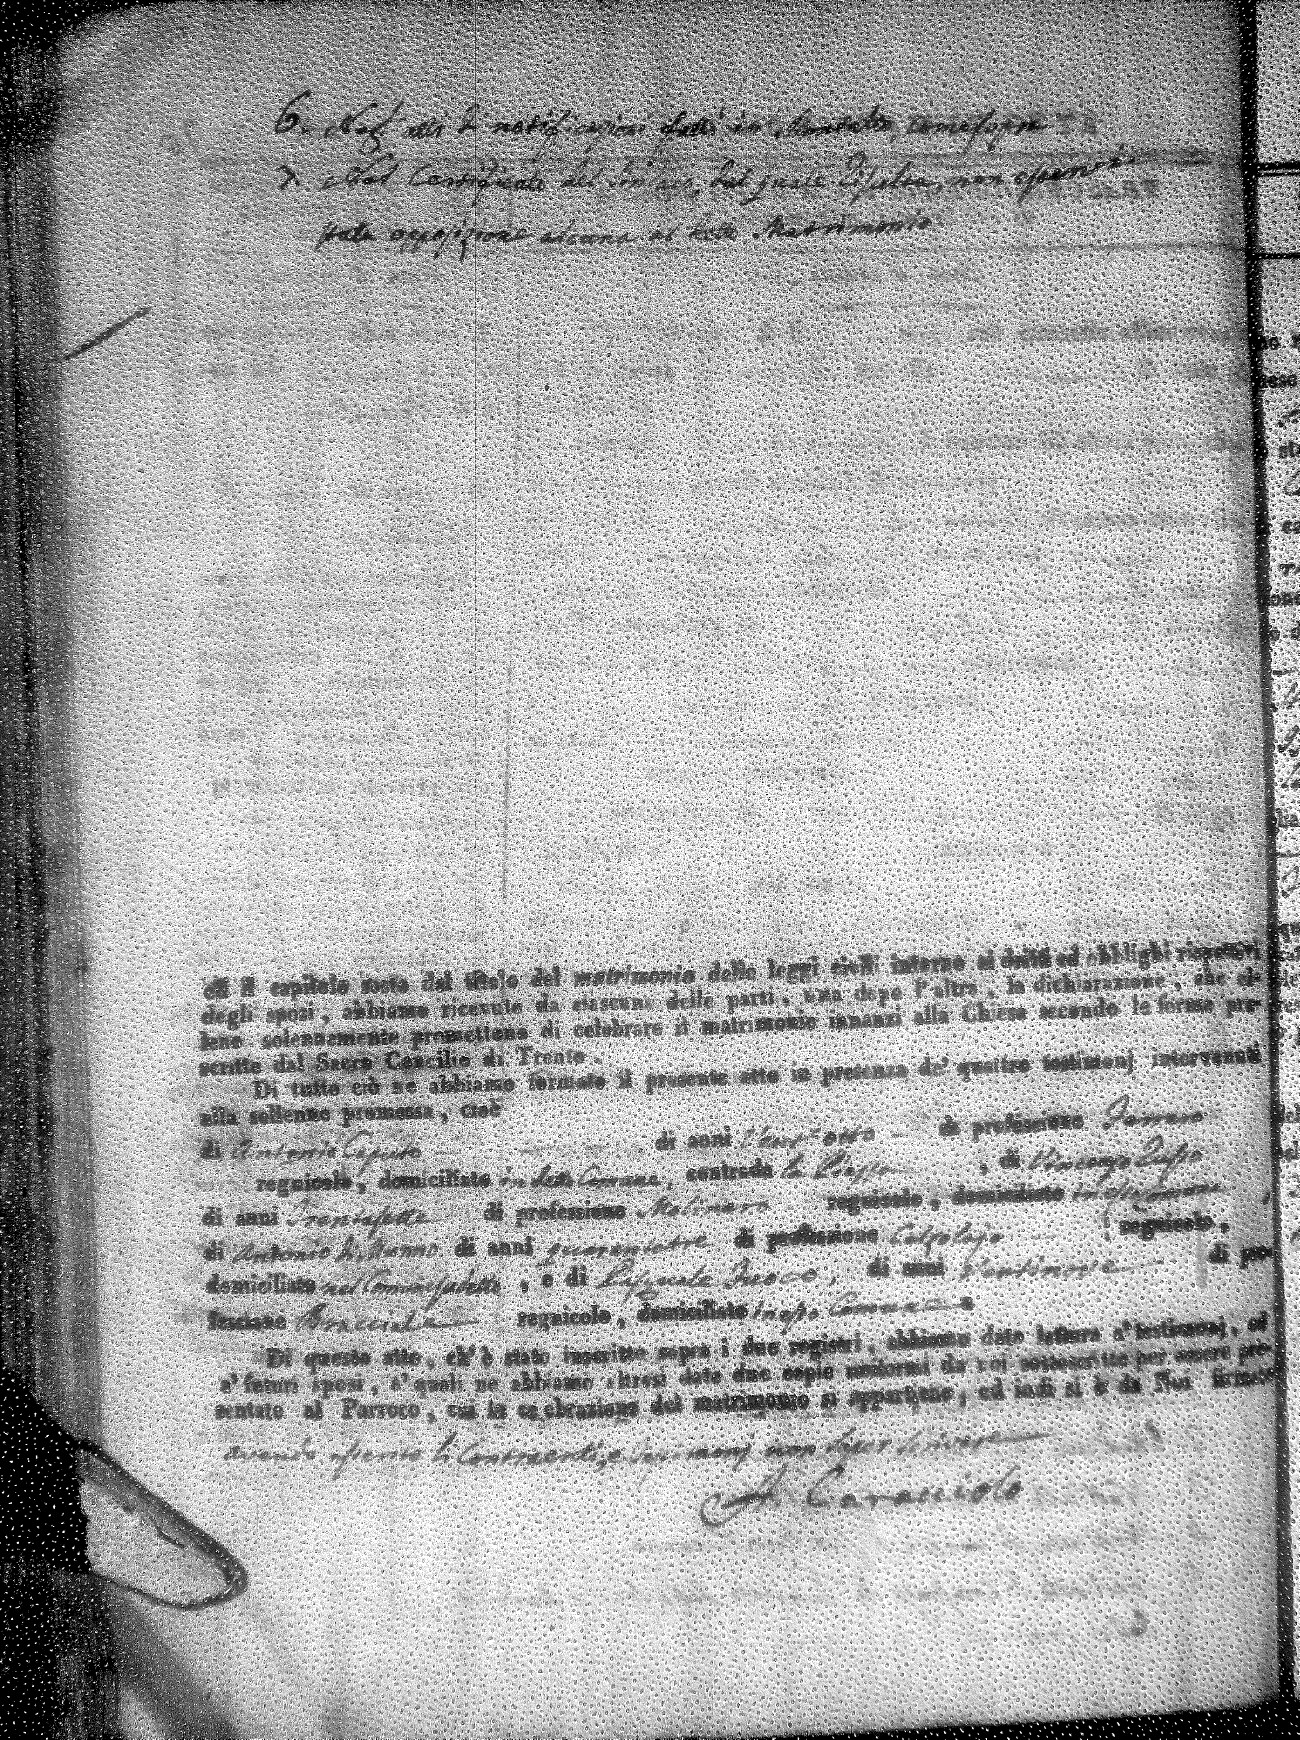 6. Negli atti di notificazioni fatti in
7. Nel Certificato del Sindaco, dal quale risulta, non essервi
stata opposizione alcuna al detto Matrimonio
di il capitolo sesto dal titolo del matrimonio delle leggi civili intorno ai dritti ed obblighi rispettivi
degli sposi, abbiamo ricevuto da ciascuna delle parti, una dopo l'altra, la dichiarazione, che el-
leno solennemente promettono di celebrare il matrimonio innanzi alla Chiesa secondo le forme pre-
scritte dal Sacro Concilio di Trento.
Di tutto ciò ne abbiamo formato il presente atto in presenza de' quattro testimonj intervenuti
alla sollenne promessa, cioè
di Antonio Caputo di anni Vent'otto di professione
regnicolo, domiciliato in detto Comune, contrada la Piazza, di Vincenzo
di anni Trentasette di professione Molinaro regnicolo, domiciliato in
di Antonio di Nunno di anni quarantatre di professione Calzolajo regnicolo,
domiciliato nel Comune, e di Pasquale Fusco, di anni Ventinove di pro-
fessione Bracciale regnicolo, domiciliato in esso Comune
Di questo atto, ch'è stato inscritto sopra i due registri, abbiamo dato lettura a' testimonj, ed
a' futuri sposi, a' quali ne abbiamo altresì date due copie uniformi da noi sottoscritte per essere pre-
sentate al Parroco, cui la celebrazione del matrimonio si appartiene, ed indi si è da Noi firmato
avendo i Contraenti, e testimonj non saper scrivere
A. Caracciolo